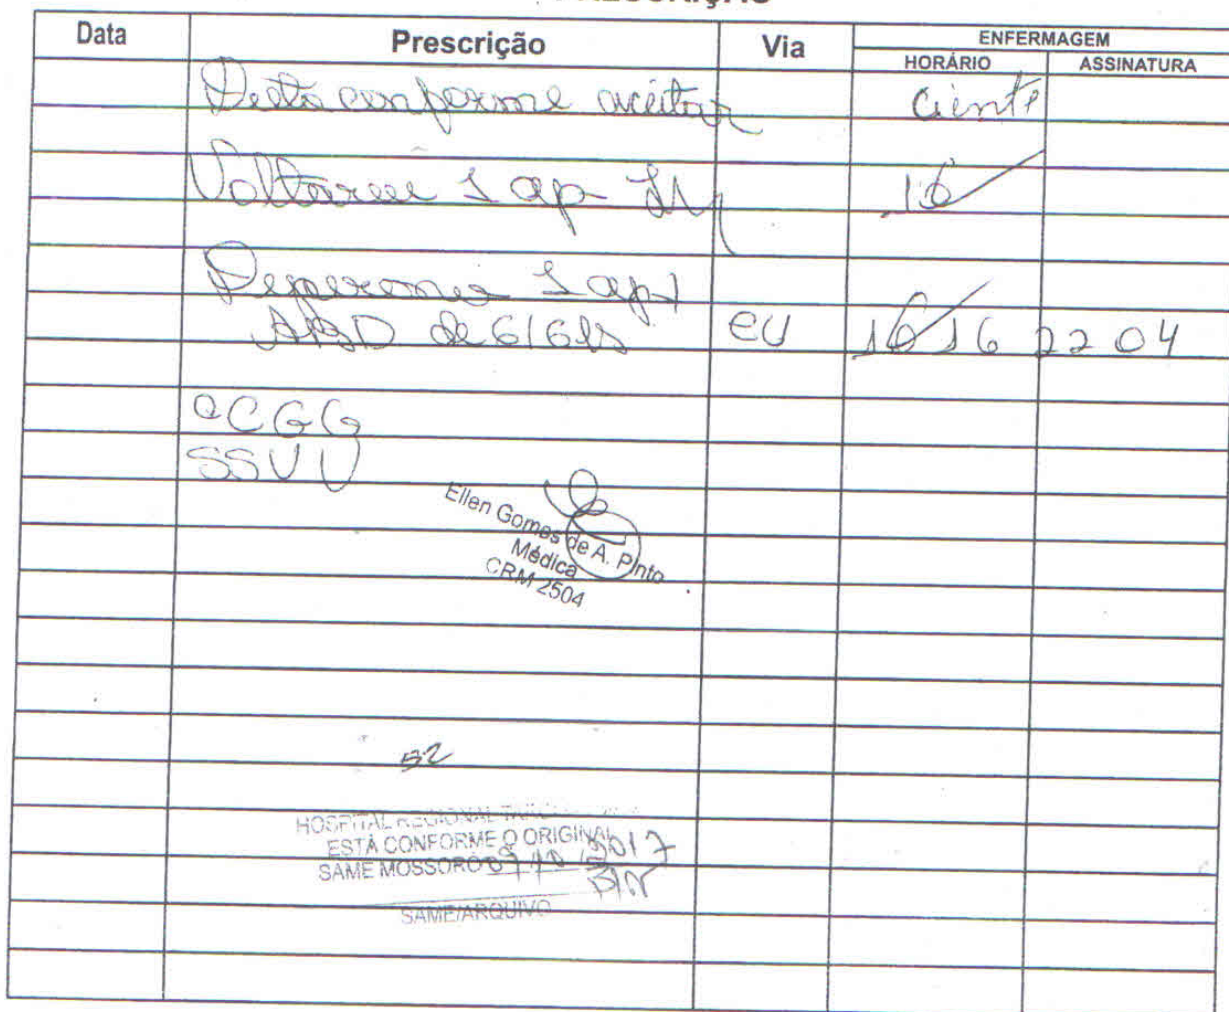 Data Prescrição Via ENFERMAGEM
HORÁRIO ASSINATURA
Dieta conforme aceitar ciente
Voltaren 1 ap IM 16
1 ap+
ABD de 6/6hs EV 10 16 22 04
CGG
SSVV
Ellen Gomes de A. Pinto
Médica
CRM 2504
52
HOSPITAL REGIONAL
ESTÁ CONFORME O ORIGINAL
SAME MOSSORÓ 2017
SAME/ARQUIVO